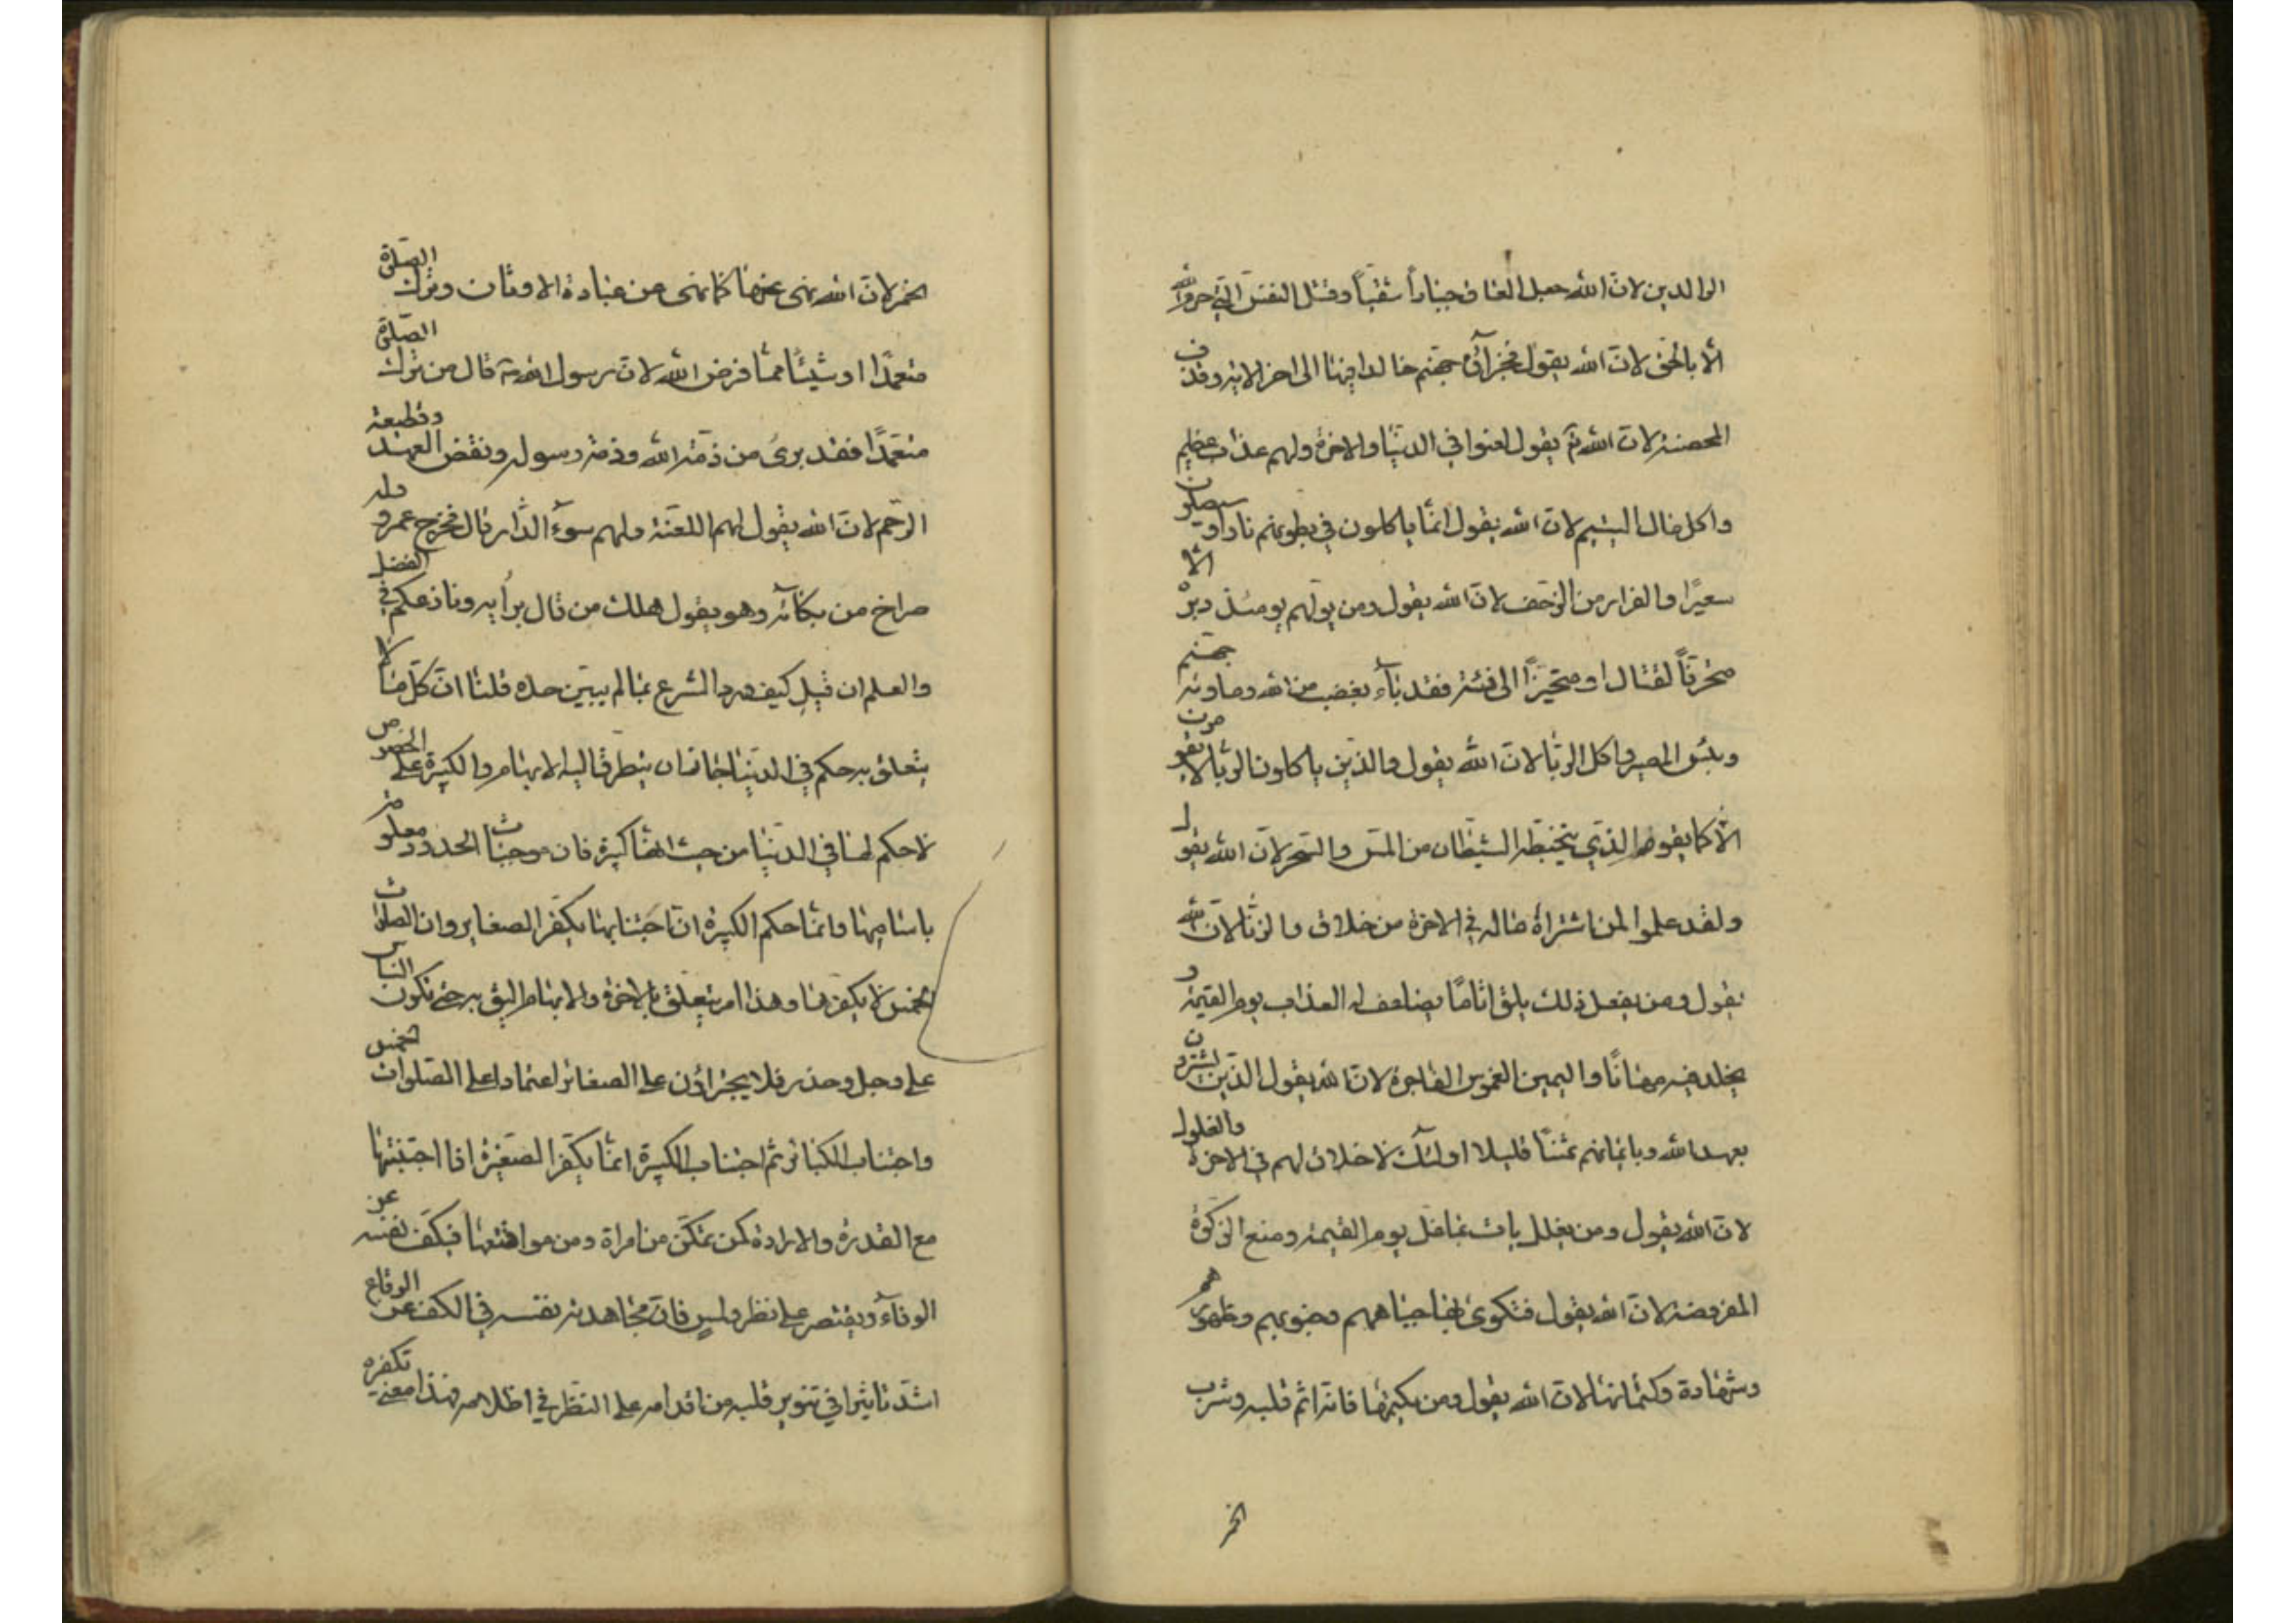 الوالدين لانّ الله جعل العاق جبّاراً شقيّاً وقتل النفس الّتي حرم الله
الّا بالحق لانّ الله يقول فجزآؤه جهنّم خالدا فيها الى اخر الاية وقذف
المحصنة لانّ الله يقول لعنوا في الدنيا والاخرة ولهم عذاب عظيم
واكل مال اليتيم لانّ الله يقول انّما ياكلون في بطونهم نارا وسيصلون
سعيرًا والفرار من الزحف لانّ الله يقول ومن يولّهم يومئذ دبره الّا
متحرفاً لقتال او متحيزاً الى فئة فقد بآء بغضب من الله وماويه جهنّم
وبئس المصير واكل الربا لانّ الله يقول والذين ياكلون الربا لا يقومون
الّا كما يقوم الذي يتخبطه الشيطان من المسّ والسّحر لانّ الله يقول
ولقد علموا لمن اشتراه ماله في الاخرة من خلاق والزنا لانّ الله
يقول ومن يفعل ذلك يلق اثامًا يضاعف له العذاب يوم القيمة و
يخلد فيه مهانًا واليمين الغموس الفاجرة لانّ الله يقول الذين يشترون
بعهد الله وبايمانهم ثمنًا قليلا اولئك لا خلاق لهم في الاخرة والغلول
لانّ الله يقول ومن يغلل يات بما غلّ يوم القيمة ومنع الزكوة
المفروضة لانّ الله يقول فتكوى بها جباههم وجنوبهم وظهورهم
وشهادة وكتمانها لانّ الله يقول ومن يكتمها فانّه اثم قلبه وشرب
الخمر
الخمر لانّ الله نهى عنها كما نهى عن عبادة الاوثان وترك الصلوة
متعمدًا او شيئًا ممّا فرض الله لانّ رسول الله ص قال من ترك الصلوة
متعمّدًا فقد برئ من ذمّة الله وذمّة رسوله ونقض العهد وقطيعة
الرّحم لانّ الله يقول لهم اللعنة ولهم سوء الدّار قال فخرج عمرو وله
صراخ من بكائه وهو يقول هلك من قال برأيه ونازعكم في الفضل
والعلم ان قيل كيف ورد الشرع بما لم يبيّن حده قلنا انّ كلّ ما لا
يتعلق به حكم في الدنيا جاز ان يتطرق اليه الابهام والكبيرة على الخصوص
لا حكم لها في الدنيا من حيث انها كبيرة فان موجبات الحدود معلومة
باساميها وانّما حكم الكبيرة انّ اجتنابها يكفّر الصغاير وان الصلوات
الخمس لا يكفرها وهذا امر يتعلّق بالاخرة والابهام اليق به حتى تكون الناس
على وجل وحذر فلا يجترؤن على الصغائر اعتمادا على الصّلوات الخمس
واجتناب الكبائر ثم اجتناب الكبيرة انّما يكفّر الصّغيرة اذا اجتنبتها
مع القدرة والارادة كمن تمكّن من امراة ومن مواقعتها فيكفّ نفسه عن
الوقاع ويقتصر على نظر ولمس فانّ مجاهدته نفسه في الكف عن الوقاع
اشدّ تاثيرا في تنوير قلبه من اقدامه على النظر في اظلامه فهذا معنى تكفره